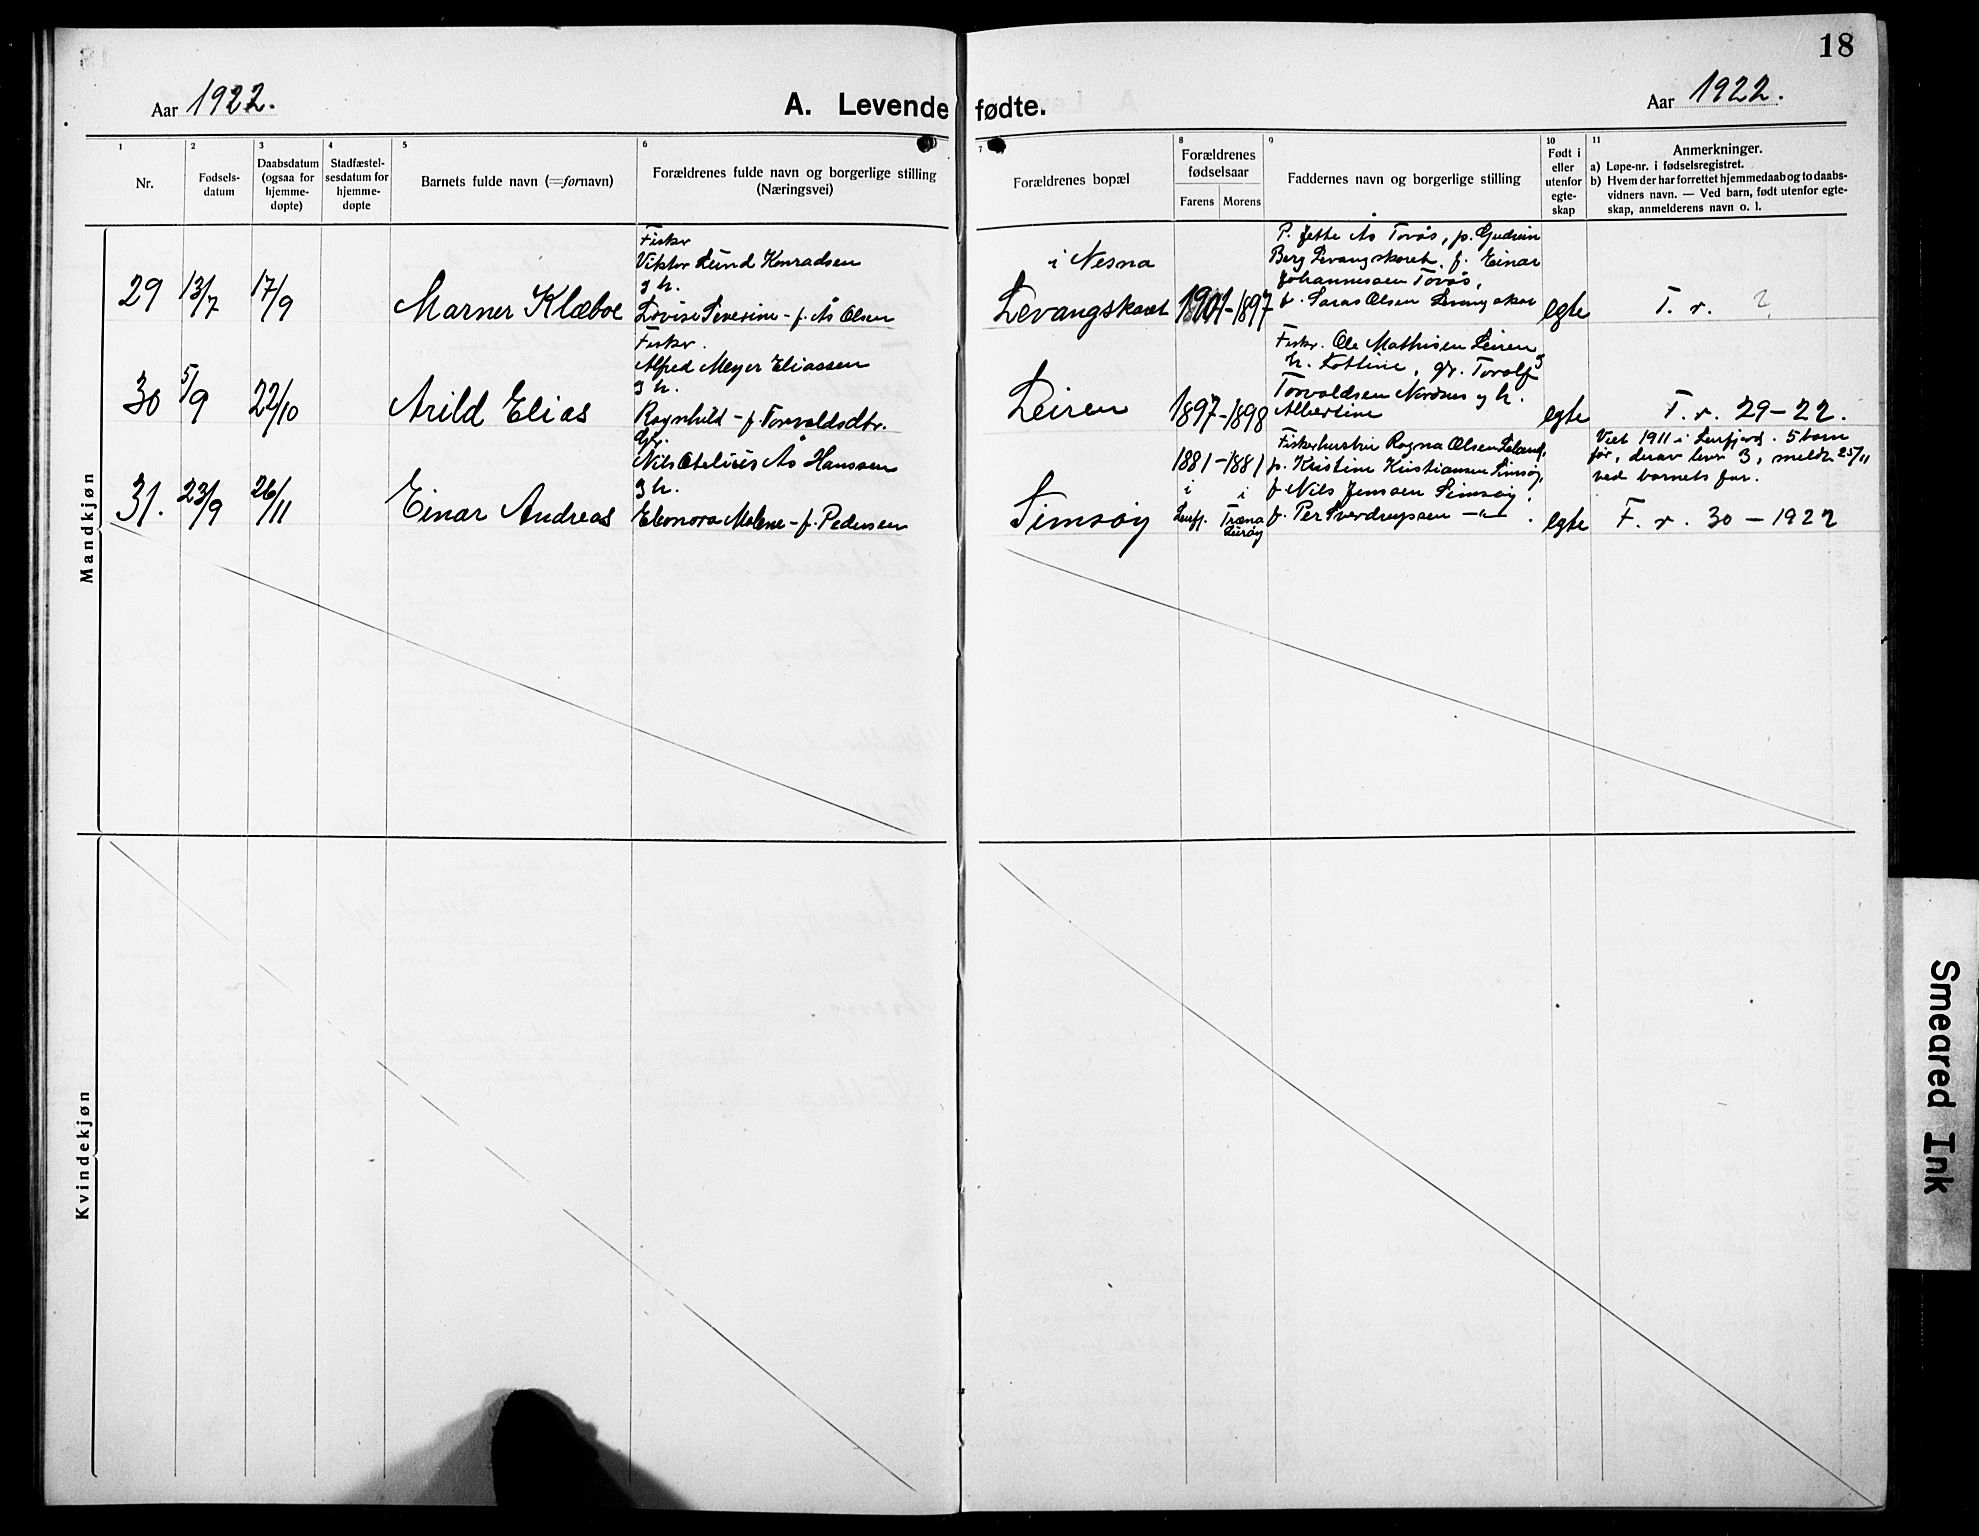 18
Aar 1922.
A. Levende fødte.
Aar 1922.
1 2 3 4 5 6 7 8 9 10 11
Nr.
Fødsels-
datum
Daabsdatum
(ogsaa for
hjemme-
døpte)
Stadfæstel-
sesdatum for
hjemme-
døpte
Barnets fulde navn (=fornavn)
Forældrenes fulde navn og borgerlige stilling
(Næringsvei)
Forældrenes bopæl
Forældrenes
fødselsaar
Farens Morens
Faddernes navn og borgerlige stilling
Født i
eller
utenfor
egte-
skap
Anmerkninger.
a) Løpe-nr. i fødselsregistret.
b) Hvem der har forrettet hjemmedaab og to daabs-
vidners navn. — Ved barn, født utenfor egte-
skap, anmelderens navn o. l.
Mandkjøn
29 13/7 17/9 Marner Klæboe
Fisker
Viktor Lund Konradsen
g h.
Lovise Severine - f. Ås Olsen
i Nesna
Levangskaret
1901-1897
P. Jette As Torås, p. Gudrun
Berg Levangskaret, f. Einar
Johannesen Torås,
f. Olsen
egte
F. r. ?
30 5/9 22/10 Arild Elias
Fisker.
Alfred Meyer Eliassen
g h.
Ragnhild - f. Torvaldsdtr.
Leiren
1897-1898
Fisker. Ole Mathisen Leiren g
h. , gr. Torolf
Torvaldsen Nordnes g h.
Albertine
egte
F. r. 29-22.
31. 23/9 26/11 Einar Andreas
Gbr.
Nils Ås Hanssen
g h.
Eleonora Malene - f. Pedersen
Simsøy
1881-1881
i i
Leirfj. Træna
Lurøy
Fiskerhustru Ragna Olsen Leland,
p. Kristine Kristiansen Simsøy,
f. Nils Jensen Simsøy,
f. Per Sverdrupsen —"— .
egte
Viet 1911 i Leirfjord. 5 barn
før, derav lever 3, meldt 25/11
ved barnets far.
F. r. 30 - 1922
Kvindekjøn
Smeared Ink